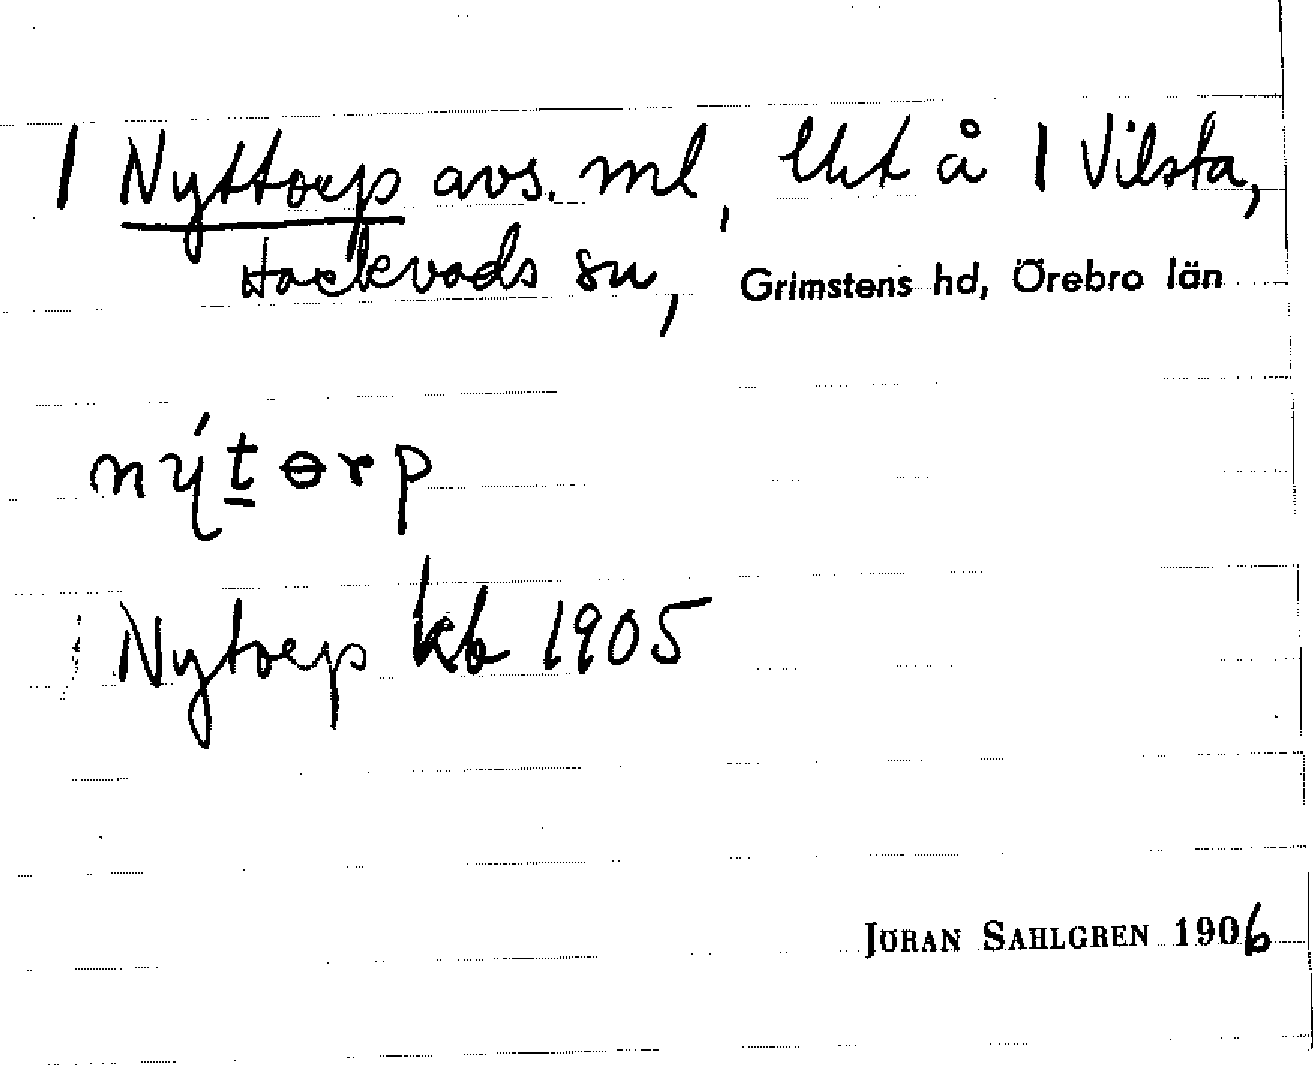 1 Nyttorp avs. ml, lht å 1 Vilsta,
Hackvads sn, Grimstens hd, Örebro län
nýtɵrp
Nytorp kb 1905
JÖRAN SAHLGREN 1906